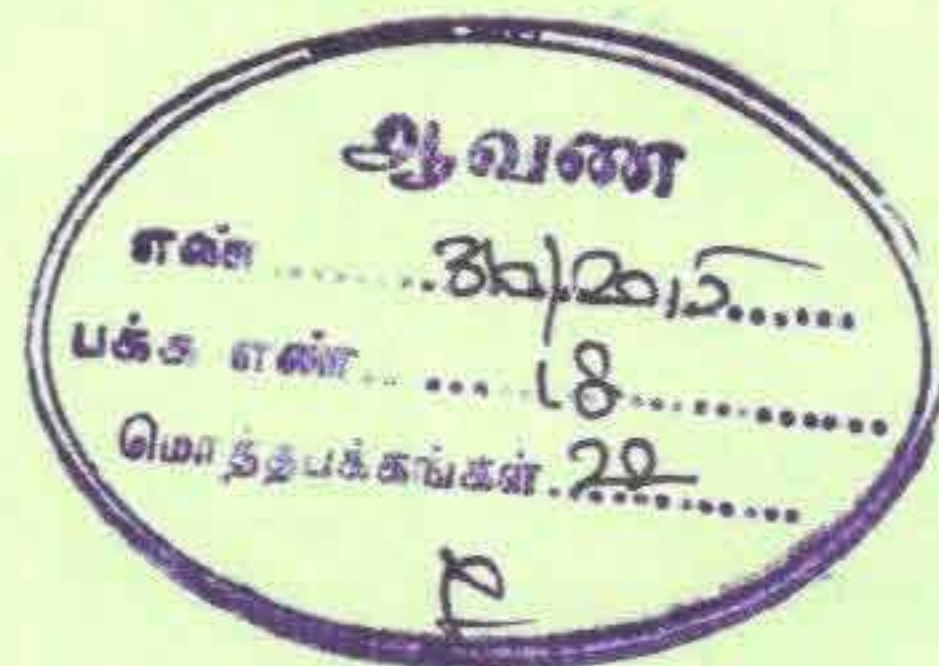 ஆவண
எண் ..........
பக்க எண் ..... 18 ............
மொத்தபக்கங்கள் .22..........